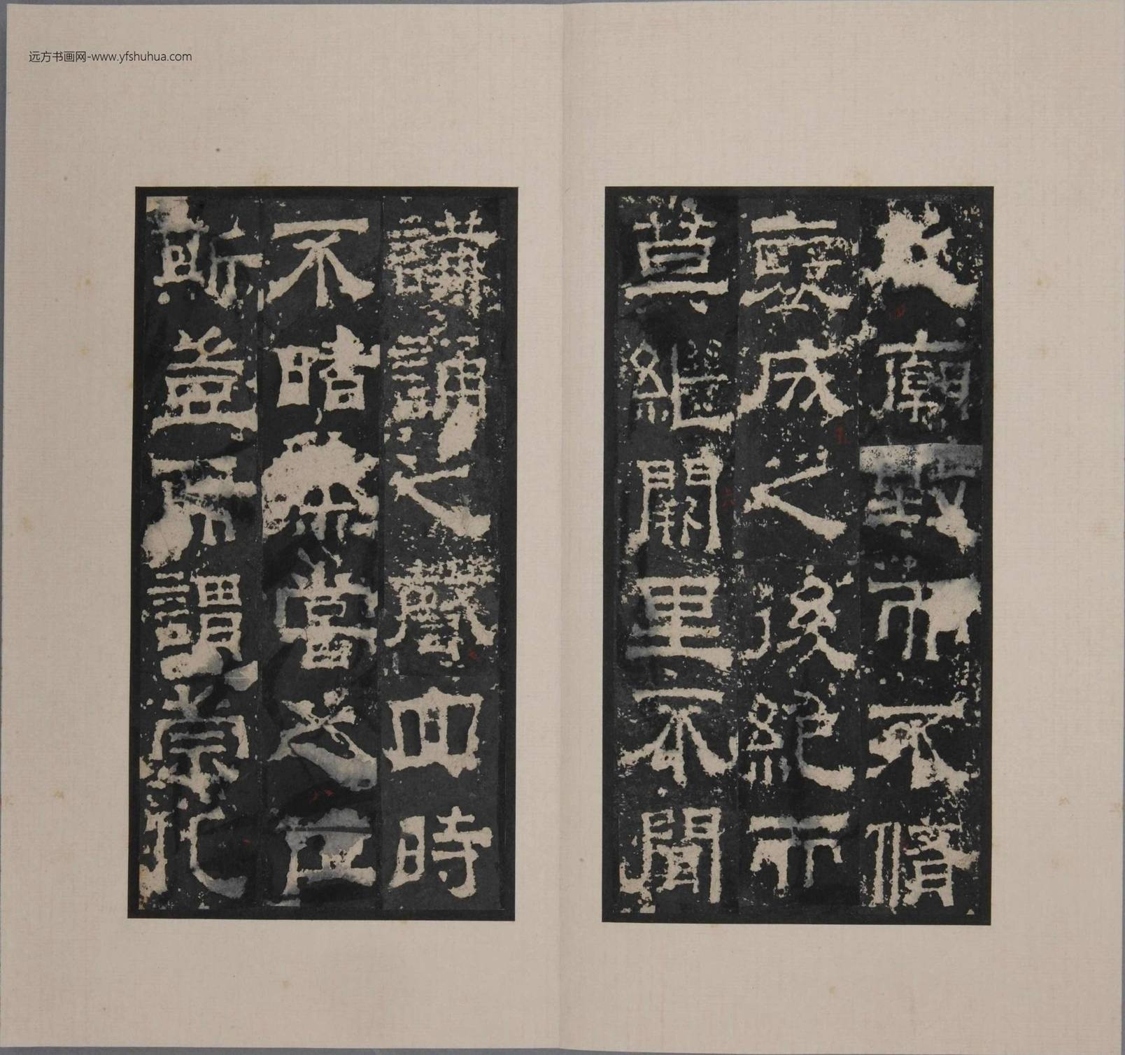 远方书画网-www.yfshuhua.com
之廟毀而不脩
襃成之後絕而
莫繼闕里不聞
講誦之聲四時
不睹烝嘗之位
斯豈所謂崇礼